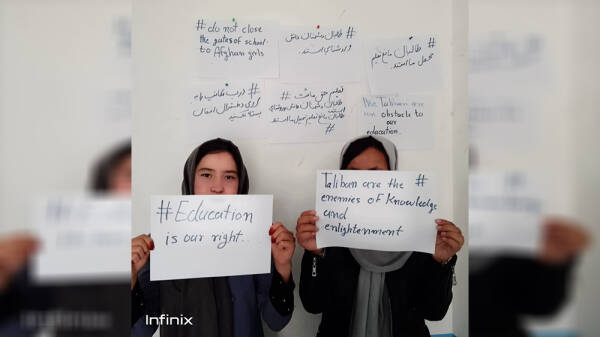 # do not close
the gates of school
to Afghan girls
# طالبان دشمنان دانش
و روشنایی استند.
# طالبان مانع تعلیم
و تحصیل ما استند.
تعلیم حق ماست #
طالبان دشمنان دانش و روشنایی
استند #
طالبان مانع تعلیم و تحصیل ما استند
#
The Taliban are
an obstacle to
our
education.
# Education
is our right..
Taliban are the #
enemies of Knowledge
and
enlightenment
Infinix